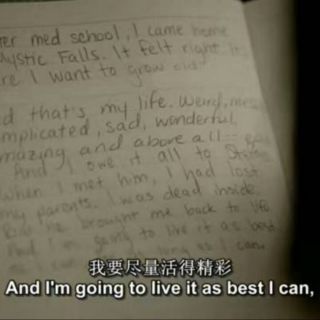 ter med school, I came home
Mystic Falls. It felt right. It
re I want to grow old
d that's my life. Weird, mes
mplicated, sad, wonderful,
mazing and above all
And I owe it all to
When I met him, I had lost
my parents. I was dead inside.
he brought me back to life.
And I'm going to live it as best
as long as I can.
我要尽量活得精彩
And I'm going to live it as best I can,